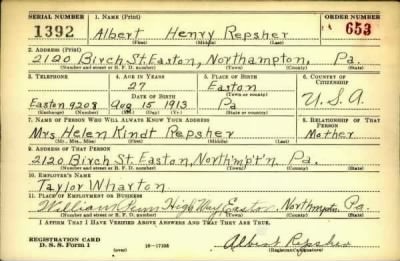 SERIAL NUMBER 1. NAME (Print) ORDER NUMBER
1392 Albert Henry Repsher 653
(First) (Middle) (Last)
2. ADDRESS (Print)
2120 Birch St. Easton, Northampton, Pa.
(Number and street or R. F. D. number) (Town) (County) (State)
3. TELEPHONE 4. AGE IN YEARS 5. PLACE OF BIRTH 6. COUNTRY OF CITIZENSHIP
27 Easton
DATE OF BIRTH (Town or county)
Easton 9208 Aug 15 1913 Pa U.S.A.
(Exchange) (Number) (Mo.) (Day) (Yr.) (State or country)
7. NAME OF PERSON WHO WILL ALWAYS KNOW YOUR ADDRESS 8. RELATIONSHIP OF THAT PERSON
Mrs Helen Kindt Repsher Mother
(Mr., Mrs., Miss) (First) (Middle) (Last)
9. ADDRESS OF THAT PERSON
2120 Birch St. Easton, North'mpt'n Pa.
(Number and street or R. F. D. number) (Town) (County) (State)
10. EMPLOYER'S NAME
Taylor Wharton
11. PLACE OF EMPLOYMENT OR BUSINESS
William Penn High Way, Easton, Northmpton Pa.
(Number and street or R. F. D. number) (Town) (County) (State)
I AFFIRM THAT I HAVE VERIFIED ABOVE ANSWERS AND THAT THEY ARE TRUE.
REGISTRATION CARD
D. S. S. Form 1 (over) 16—17105 Albert Repsher